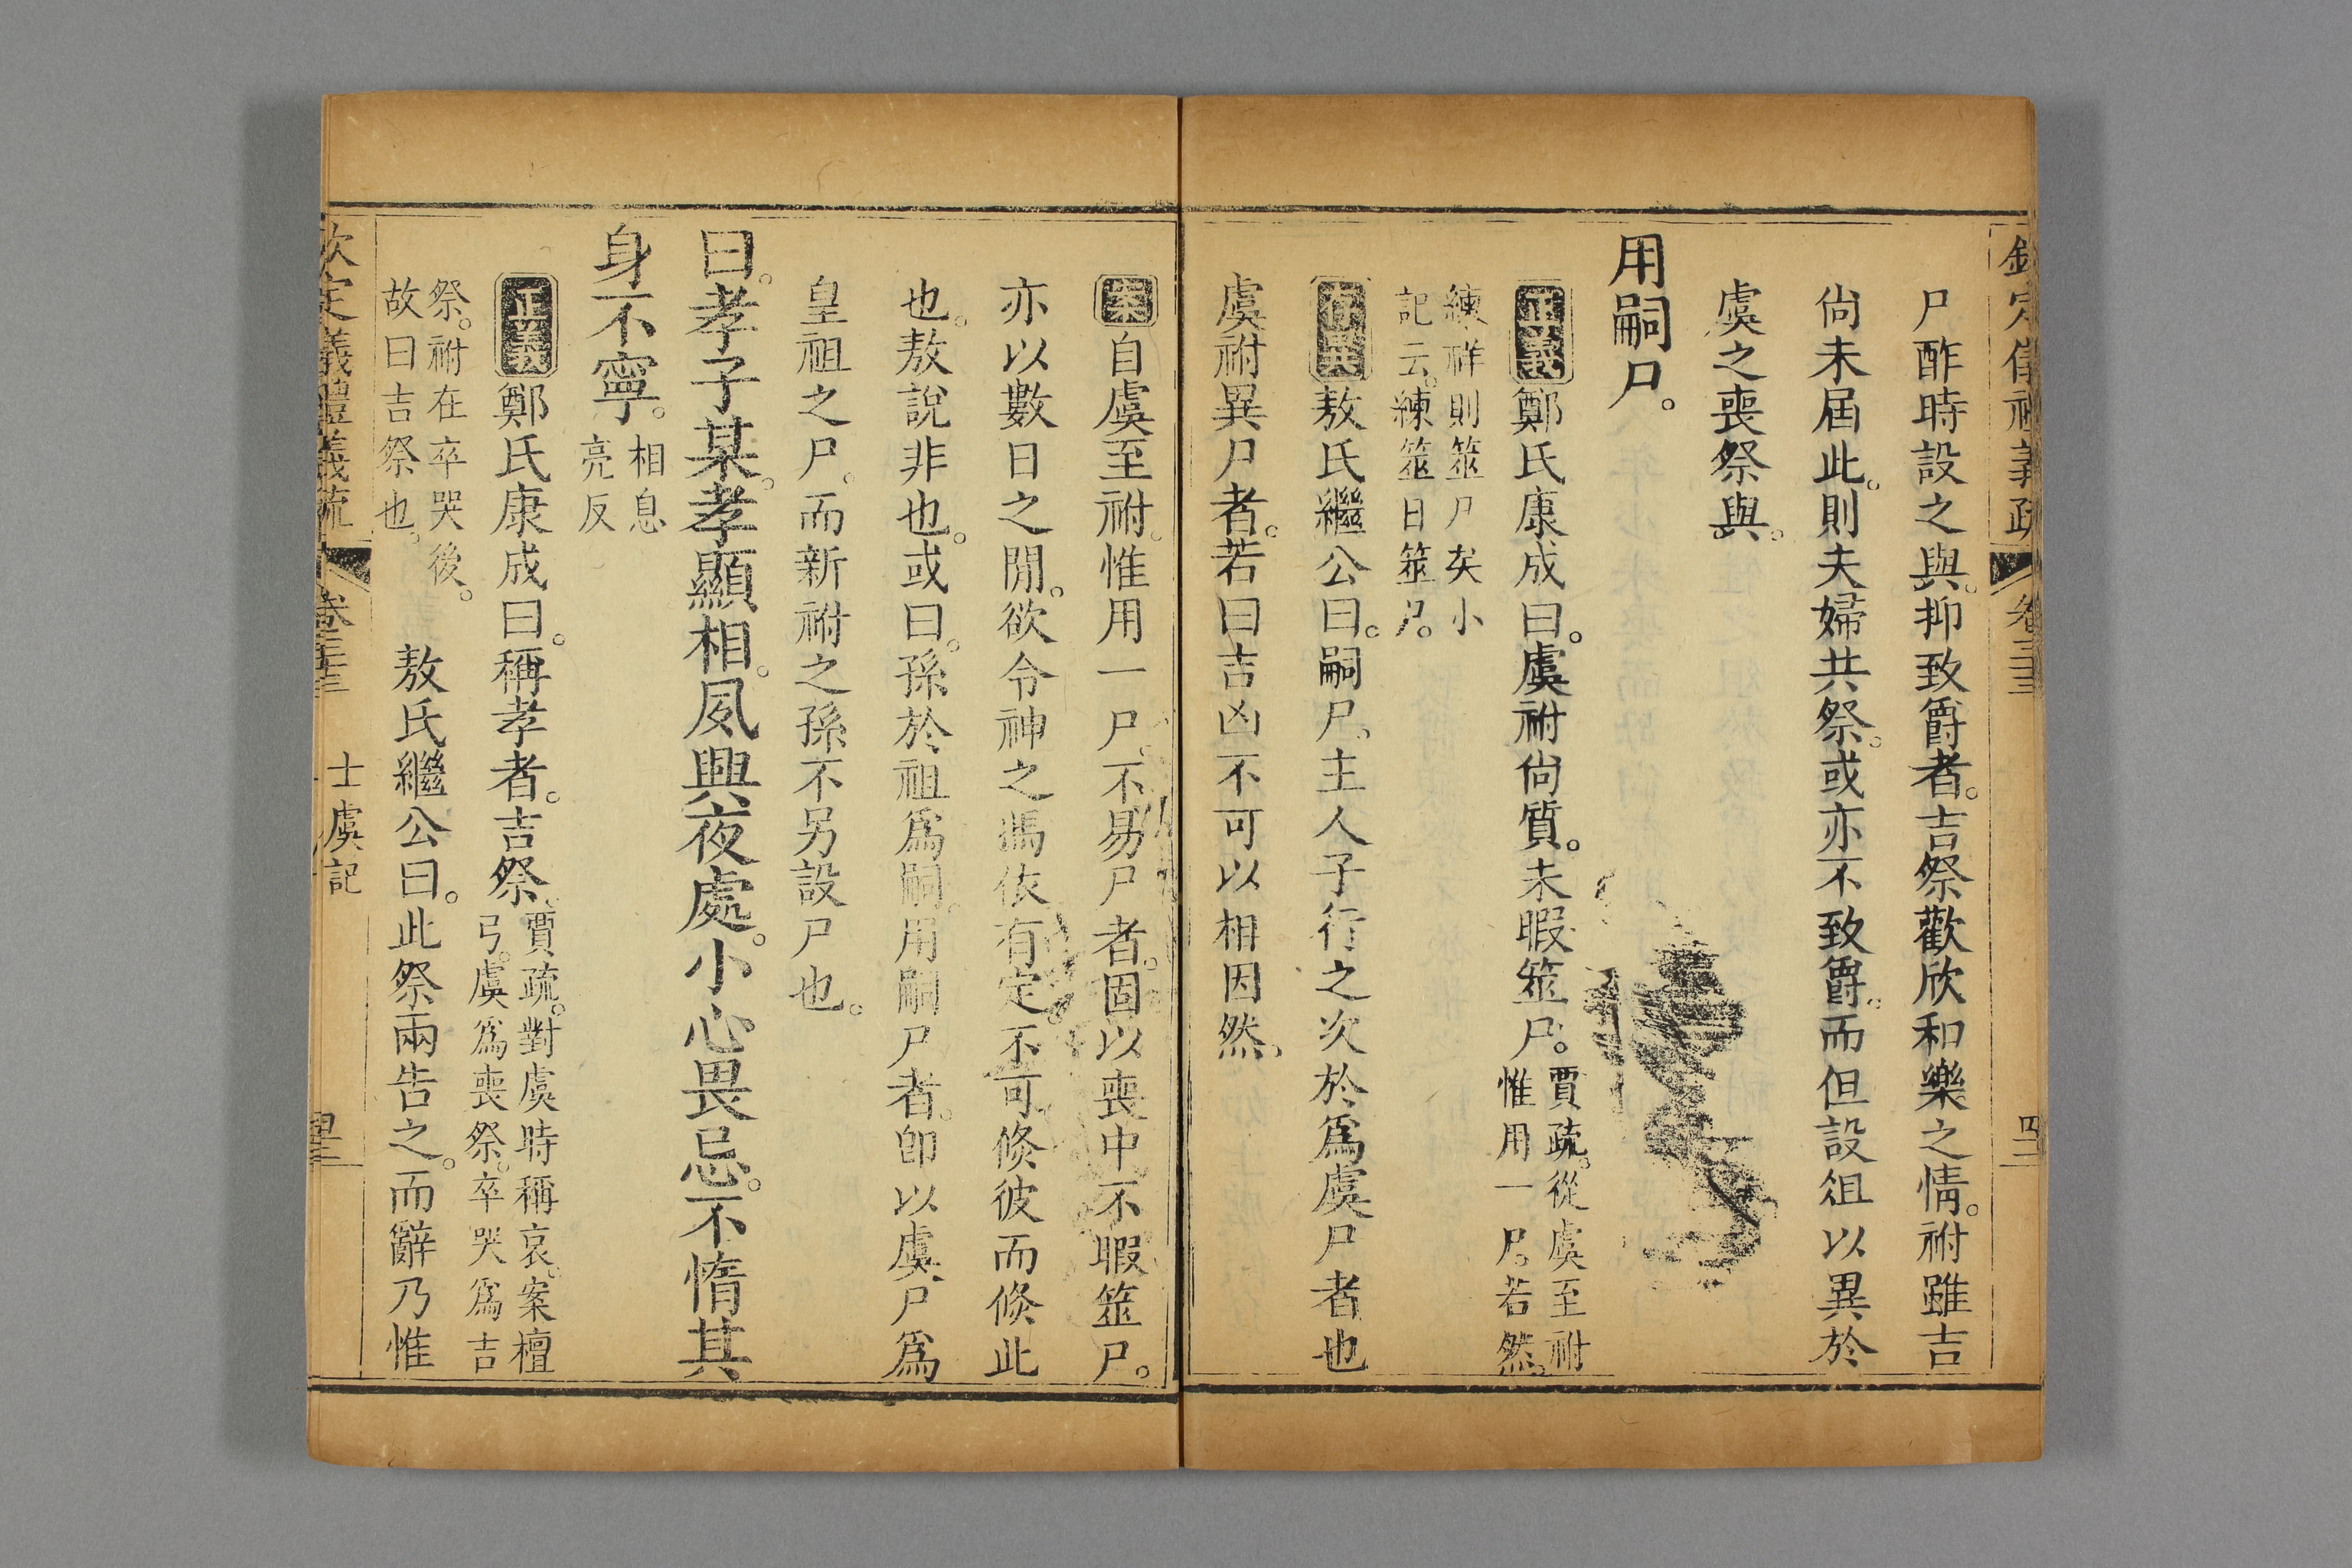 欽定儀禮義疏 卷三十三
尸酢時設之與。抑致爵者。吉祭歡欣和樂之情。祔雖吉
尙未屆此。則夫婦共祭。或亦不致爵。而但設俎以異於
虞之喪祭與。
用嗣尸。
正義鄭氏康成曰。虞祔尙質。未暇筮尸。賈疏。從虞至祔
惟用一尸。若然。
練祥則筮尸矣小
記云。練筮日筮尸。
存異敖氏繼公曰。嗣尸。主人子行之次於爲虞尸者也
虞祔異尸者。若曰吉凶不可以相因然。
案自虞至祔。惟用一尸。不易尸者。固以喪中不暇筮尸。
亦以數日之閒。欲令神之馮依有定。不可倏彼而倏此
也。敖說非也。或曰。孫於祖爲嗣。用嗣尸者。卽以虞尸爲
皇祖之尸。而新祔之孫不另設尸也。
曰。孝子某。孝顯相。夙興夜處。小心畏忌。不惰其
身不寧。相息
亮反
正義鄭氏康成曰。稱孝者。吉祭。賈疏。對虞時稱哀。案檀
弓。虞爲喪祭。卒哭爲吉
祭。祔在卒哭後。
故曰吉祭也。
敖氏繼公曰。此祭兩告之。而辭乃惟
欽定儀禮義疏 卷三十三 士虞記